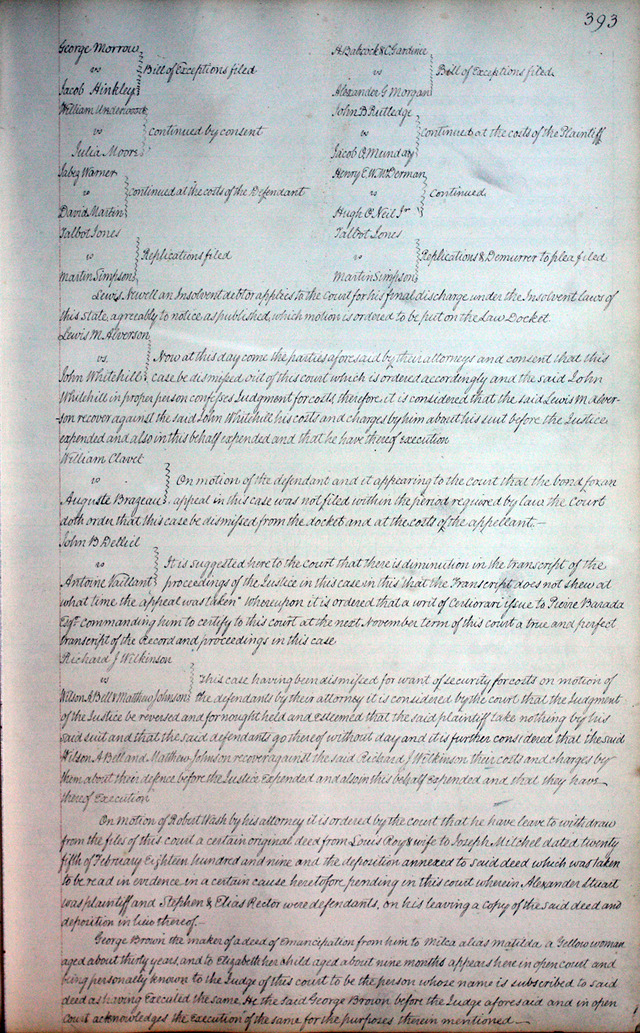 393
George Morrow
vs
Jacob Hinkley
Bill of Exceptions filed
A Babcock & C Gardiner
vs
Alexander G Morgan
Bill of Exceptions filed.
William Underwood
vs
Julia Moore
continued by consent
John B Rutledge
vs
Jacob Q Munday
continued at the costs of the Plaintiff
Jabez Warner
vs
David Martin
continued at the costs of the Defendant
Henry E. W. McDerman
vs
Hugh O'Neil Jr
continued.
Talbot Jones
vs
Martin Simpson
Replications filed
Talbot Jones
vs
Martin Simpson
Replications & Demurrer to plea filed
Lewis Newell an Insolvent debtor applies to the Court for his final discharge under the Insolvent laws of
this State, agreably to notice as published, which motion is ordered to be put on the Law Docket
Lewis M. Alverson
vs.
John Whitehill
Now at this day come the parties aforesaid by their attorneys and consent that this
case be dismissed out of this court which is ordered accordingly and the said John
Whitehill in proper person confesses Judgment for costs, therefore it is considered that the said Lewis M. Alver-
-son recover against the said John Whitehill his costs and charges by him about his suit before the Justice
expended and also in this behalf expended and that he have thereof Execution
William Clavet
vs
Auguste Brazeau
On motion of the defendant and it appearing to the court that the bond for an
appeal in this case was not filed within the period required by law the Court
doth order that this case be dismissed from the docket and at the costs of the appellant.—
John B Delliel
vs
Antoine Vaillant
It is suggested here to the court that there is diminution in the transcript of the
proceedings of the Justice in this case in this "that the Transcript does not shew at
what time the appeal was taken" Whereupon it is ordered that a writ of Certiorari issue to Pierre Barada
Esqr. commanding him to certify to this court at the next November term of this court a true and perfect
transcript of the Record and proceedings in this case
Richard J Wilkinson
vs
Wilson A Bell & Matthew Johnson
This case having been dismissed for want of security for costs on motion of
the defendants by their attorney it is considered by the court that the Judgment
of the Justice be reversed and for nought held and esteemed that the said plaintiff take nothing by his
said suit and that the said defendants go thereof without day and it is further considered that the said
Wilson A Bell and Matthew Johnson recover against the said Richard J Wilkinson their costs and charges by
them about their defence before the Justice Expended and also in this behalf expended and that they have
thereof Execution
On motion of Robert Wash by his attorney it is ordered by the court that he have leave to withdraw
from the files of this court a certain original deed from Louis Roy & wife to Joseph Mitchel dated twenty
fifth of February Eighteen hundred and nine and the deposition annexed to said deed which was taken
to be read in evidence in a certain cause heretofore pending in this court wherein Alexander Stuart
was plaintiff and Stephen & Elias Rector were defendants, on his leaving a copy of the said deed and
deposition in lieu thereof.—
George Brown the maker of a deed of Emancipation from him to Milca alias Matilda, a Yellow woman
aged about thirty years, and to Elizabeth her child aged about nine months appears here in open court and
being personally known to the Judge of this court to be the person whose name is subscribed to said
deed as having Executed the same, He the said George Brown before the Judge aforesaid and in open
Court acknowledges the Execution of the same for the purposes therein mentioned—